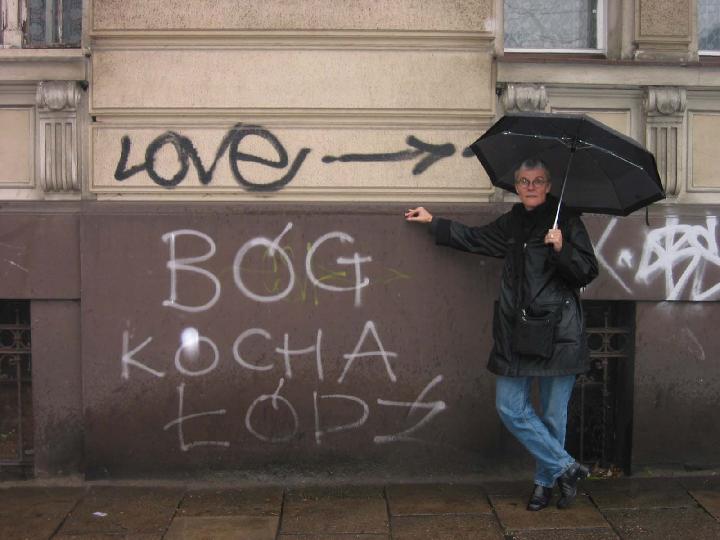 LOVE
BÓG
KOCHA
ŁÓDŹ